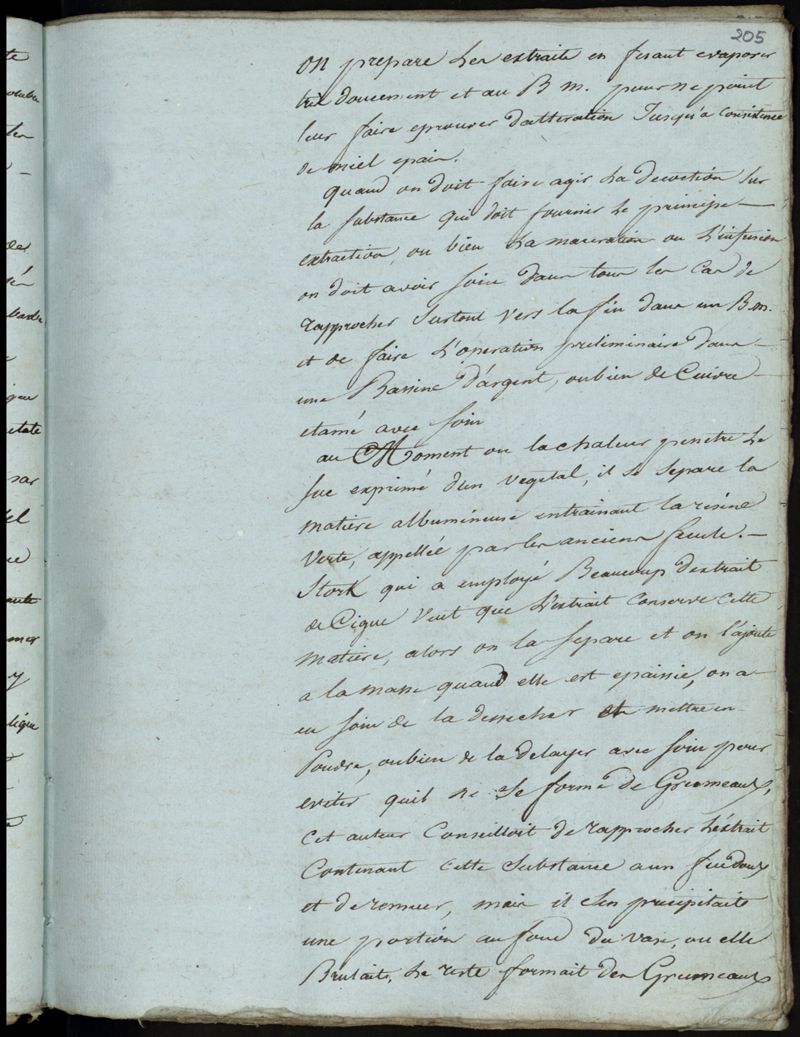 205
on prepare les extraits en fesant evaporer
très doucement et au B m. pour ne point
leur faire eprouver d'alteration Jusqu'a consistence
de miel epais.
quand on doit faire agir la decoction sur
la substance qui doit fournir le principe —
extractive, ou bien la maceration ou l'infusion
on doit avoir soin dans tous les cas de
rapprocher surtout vers la fin dans un B.m.
et de faire l'operation preliminaire dans —
une Bassine d'argent, oubien de Cuivre —
etamé avec soin
au Moment ou la chaleur penetre le
suc exprimé d'un vegetal, il se separe la
matiere albumineuse entrainant la résine
verte, appellée par les anciens fecule. —
Stork qui a employé Beaucoup d'extrait
de Cigue veut que l'extrait conserve cette
matiere, alors on la separe et on l'ajoute
a la masse quand elle est epaissie, on a —
eu soin de la dessecher et mettre en
Poudre, oubien de la delayer avec soin pour
eviter quil ne se forme de Grumeaux,
cet auteur Conseilloit de rapprocher l'extrait
Contenant cette substance a un feu doux
et de remuer, mais il s'en precipitait
une portion au fond du vase, ou elle
Brulait, le reste formait des Grumeaux
te
des
par
el
mer
y